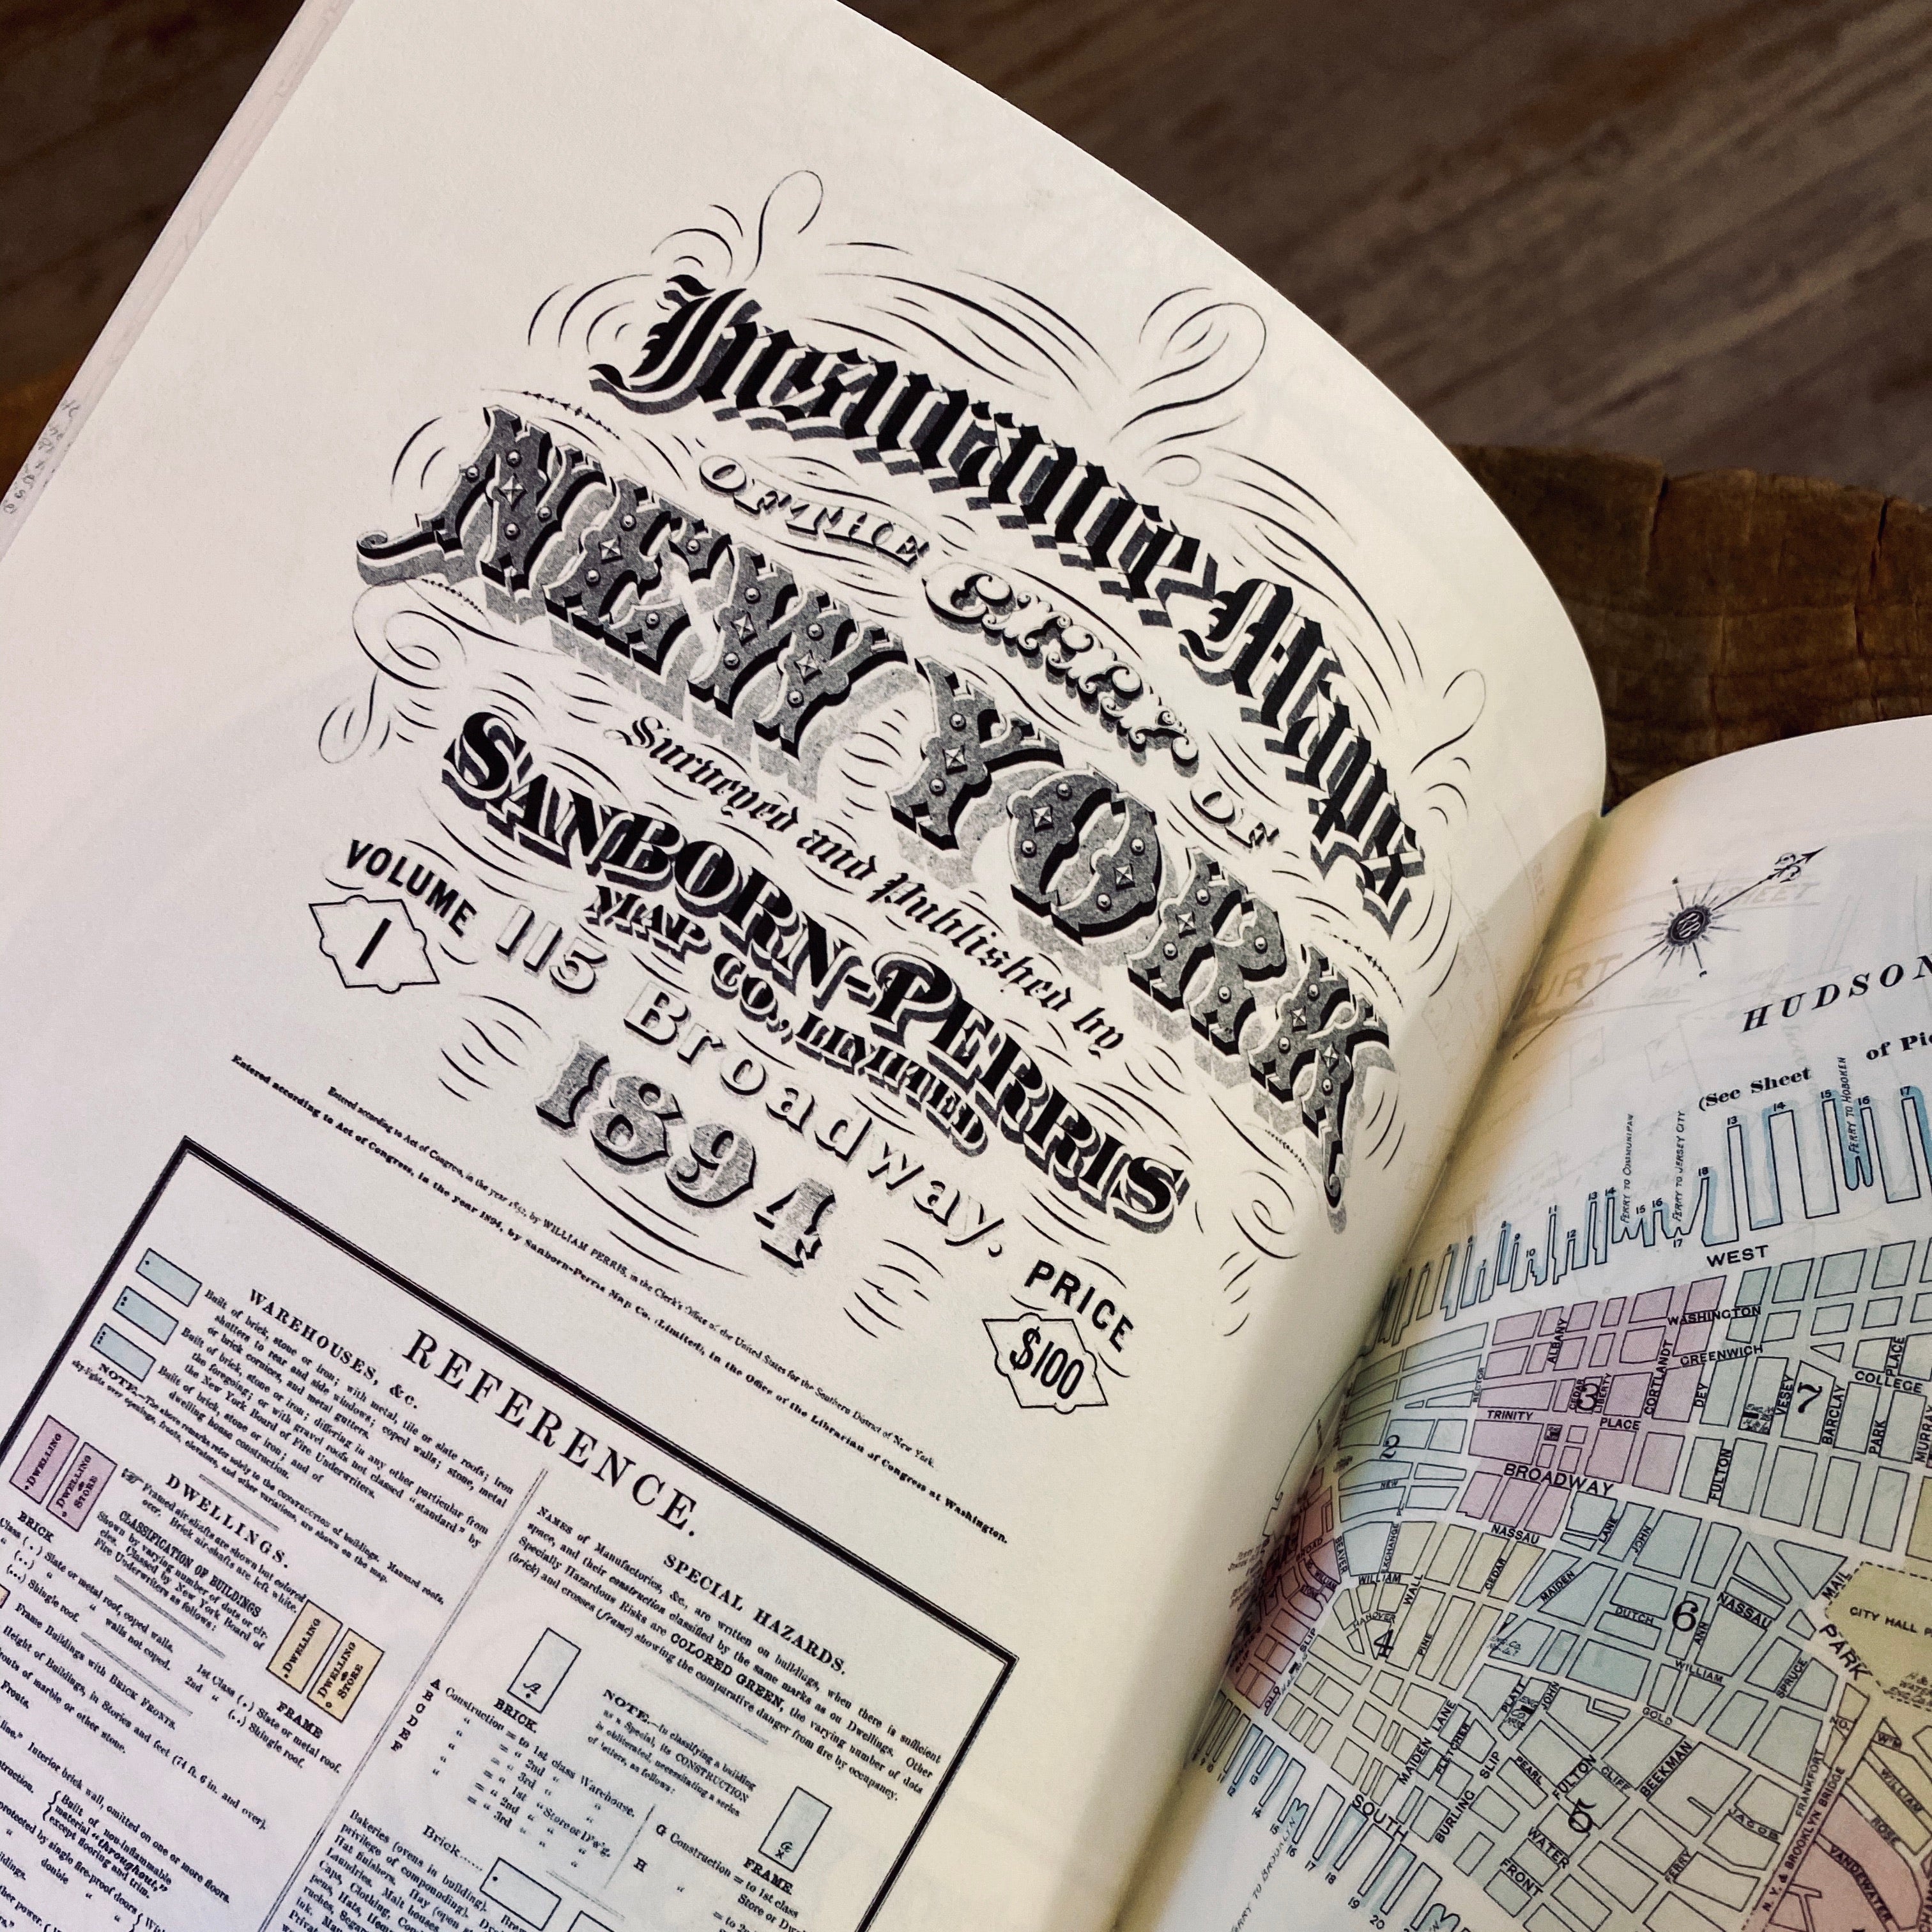 Insurance Maps
OF THE CITY OF
NEW YORK
Surveyed and Published by
SANBORN-PERRIS
MAP CO., LIMITED
115 Broadway.
1894
VOLUME
1
PRICE
$100
Entered according to Act of Congress, in the year 1852, by WILLIAM PERRIS, in the Clerk's Office of the United States for the Southern District of New York.
Entered according to Act of Congress, in the year 1894, by Sanborn-Perris Map Co. (Limited), in the Office of the Librarian of Congress at Washington.
REFERENCE.
WAREHOUSES, &c.
Built of brick, stone or iron; with metal, tile or slate roofs; iron
shutters to rear and side windows; coped walls; stone, metal
or brick cornices, and metal gutters.
Built of brick, stone or iron; differing in any other particular from
the foregoing; or with gravel roofs not classed "standard" by
the New York Board of Fire Underwriters.
Built of brick, stone or iron; and of
dwelling house construction.
NOTE.—The above remarks refer solely to the CONSTRUCTION of buildings. Mansard roofs,
sky-lights over openings, elevators, and other variations, are shown on the map.
DWELLINGS.
DWELLING
DWELLING & STORE
BRICK
Framed air-shafts are shown but colored
over. Brick air-shafts are left white.
CLASSIFICATION OF BUILDINGS
Shown by varying number of dots or cir-
cles. Classed by New York Board of
Fire Underwriters as follows:
Class (.) Slate or metal roof, coped walls.
(..) " " walls not coped.
(...) Shingle roof.
DWELLING
DWELLING & STORE
FRAME
1st Class (.) Slate or metal roof.
2nd " (..) Shingle roof.
Frame Buildings with BRICK FRONTS.
Height of Buildings, in Stories and feet (74 ft. 6 in. and over).
Fronts of marble or other stone.
Fronts.
Interior brick wall, omitted on one or more floors.
Built of non-inflammable
material "throughout,"
except flooring and trim.
protected by single fire-proof doors
double "
SPECIAL HAZARDS.
NAMES of Manufactories, &c., are written on buildings, when there is sufficient
space, and their construction classified by the same marks as on Dwellings. Other
Specially Hazardous Risks are COLORED GREEN, the varying number of dots
(brick) and crosses (frame) showing the comparative danger from fire by occupancy.
A
BRICK.
NOTE.—In classifying a building
as a Special, its CONSTRUCTION
is obliterated, necessitating a series
of letters, as follows:
A Construction = to 1st class Warehouse.
B " = " 2nd " "
C " = " 3rd " "
D " = " 1st " Store or D'w'g.
E " = " 2nd " "
F " = " 3rd " "
G
FRAME.
G Construction = to 1st class
Store or Dwel
H " = to 2n
Brick
Bakeries (ovens in building).
privilege of compounding).
Hat finishers. Hay (open
Laundries. Malt houses.
HUDSON
of Pie
(See Sheet
FERRY TO COMMUNIPAW
FERRY TO JERSEY CITY
FERRY TO HOBOKEN
13 14 15 16 17
WEST
WASHINGTON
GREENWICH
ALBANY
CEDAR
LIBERTY
CORTLANDT
DEY
VESEY
BARCLAY
PARK
PLACE
COLLEGE
MURRAY
RECTOR
TRINITY
PLACE
3
7
2
BROADWAY
FULTON
NEW
EXCHANGE
NASSAU
CEDAR
LANE
JOHN
MAIDEN
DUTCH
6
ANN
NASSAU
MAIL
CITY HALL P
PARK
BEAVER
WILLIAM
WALL
HANOVER
4
PINE
WILLIAM
SPRUCE
PLATT
JOHN
GOLD
OLD SLIP
MAIDEN LANE
FLETCHER
BURLING SLIP
PEARL
FULTON
CLIFF
BEEKMAN
FRANKFORT
JACOB
N.Y. & BROOKLYN BRIDGE
WM
WILLIAM
ROSE
VANDEWATER
SOUTH
WATER
FRONT
FERRY
18
19
20